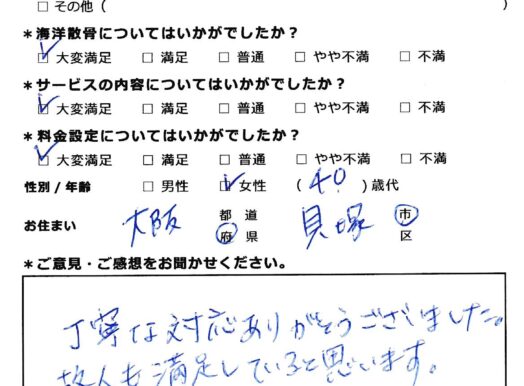 □ その他（ ）
＊海洋散骨についてはいかがでしたか？
☑ 大変満足 □ 満足 □ 普通 □ やや不満 □ 不満
＊サービスの内容についてはいかがでしたか？
☑ 大変満足 □ 満足 □ 普通 □ やや不満 □ 不満
＊料金設定についてはいかがでしたか？
☑ 大変満足 □ 満足 □ 普通 □ やや不満 □ 不満
性別 / 年齢 □ 男性 ☑ 女性 （ 40 ）歳代
お住まい 大阪 都 道 府 県 貝塚 市 区
＊ご意見・ご感想をお聞かせください。
丁寧な対応ありがとうございました。
故人も満足していると思います。